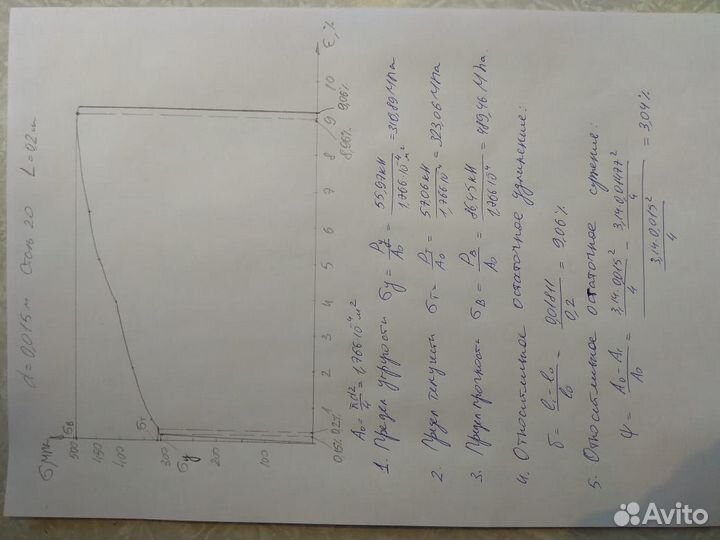 d=0,015 м Сталь 20 L=0,2 м
σ, МПа
500
450
400
300
200
100
σв
σт
σу
0,15% 0,2%
1 2 3 4 5 6 7 8 9 10 ε, %
8,96%
9,06%
A₀ = πd²/4 = 1,766·10⁻⁴ м²
1. Предел упругости σу = Pу/A₀ = 55,97кН/1,766·10⁻⁴ м² = 316,89 МПа
2. Предел текучести σт = Pт/A₀ = 57,06 кН/1,766·10⁻⁴ = 323,06 МПа
3. Предел прочности σв = Pв/A₀ = 86,45 кН/1,766·10⁻⁴ = 489,46 МПа.
4. Относительное остаточное удлинение:
δ = (l₁ - l₀)/l₀ = 0,01811/0,2 = 9,06 %
5. Относительное остаточное сужение:
ψ = (A₀ - A₁)/A₀ = (3,14·0,015²/4 - 3,14·0,01477²/4)/(3,14·0,015²/4) = 3,04%
Avito